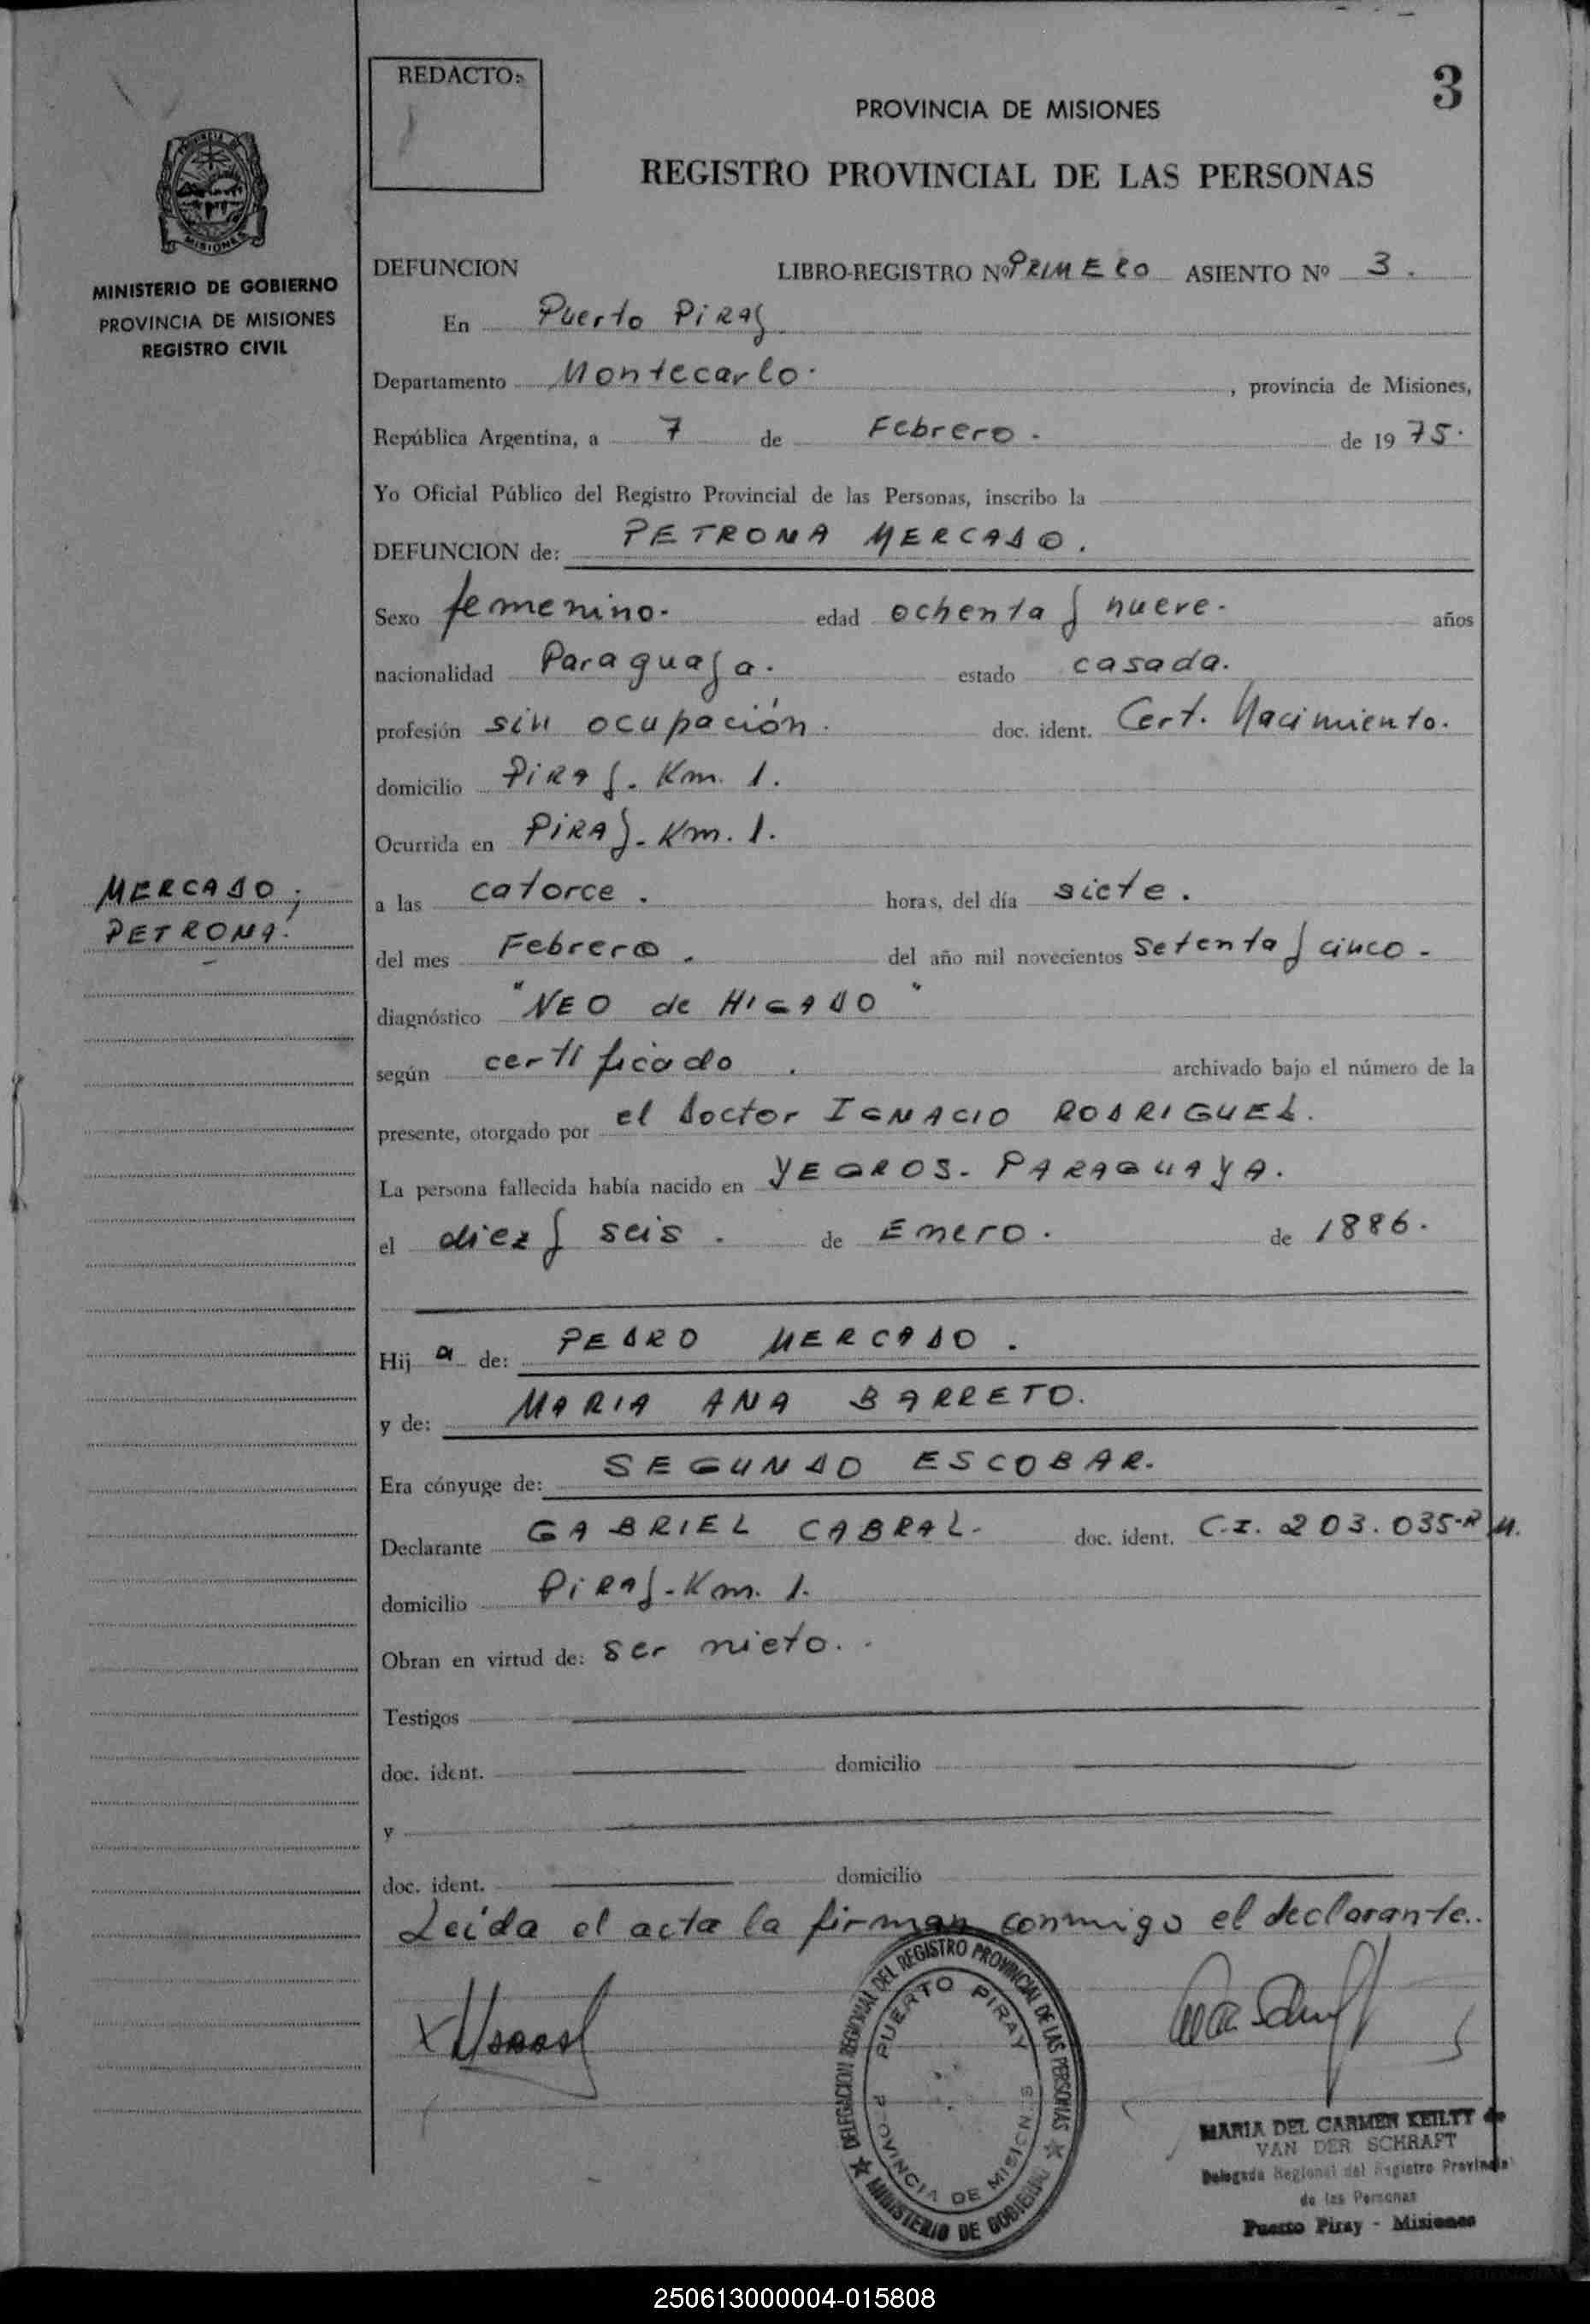 REDACTO:
3
PROVINCIA DE MISIONES
REGISTRO PROVINCIAL DE LAS PERSONAS
PROVINCIA DE
MISIONES
MINISTERIO DE GOBIERNO
PROVINCIA DE MISIONES
REGISTRO CIVIL
DEFUNCION LIBRO-REGISTRO Nº PRIMERO ASIENTO Nº 3.
En Puerto PiRay
Departamento Montecarlo. , provincia de Misiones,
República Argentina, a 7 de Febrero. de 1975.
Yo Oficial Público del Registro Provincial de las Personas, inscribo la
DEFUNCION de: PETRONA MERCADO.
Sexo femenino. edad ochenta y nueve. años
nacionalidad Paraguaya. estado casada.
profesión sin ocupación. doc. ident. Cert. Nacimiento.
domicilio PiRay. Km. 1.
Ocurrida en PiRAy. Km. 1.
MERCADO;
PETRONA.
a las catorce. horas, del día siete.
del mes Febrero. del año mil novecientos setenta y cinco.
diagnóstico "NEO de HIGADO"
según certificado. archivado bajo el número de la
presente, otorgado por el Doctor IGNACIO RODRIGUEZ.
La persona fallecida había nacido en YEGROS- PARAGUAYA.
el diez y seis. de Enero. de 1886.
Hija de: PEDRO MERCADO.
y de: MARIA ANA BARRETO.
Era cónyuge de: SEGUNDO ESCOBAR.
Declarante GABRIEL CABRAL. doc. ident. C.I. 203.035-R M.
domicilio PiRay-Km. 1.
Obran en virtud de: ser nieto.
Testigos
doc. ident. domicilio
y
doc. ident. domicilio
Leída el acta la firman conmigo el declarante.
DELEGACION REGIONAL DEL REGISTRO PROVINCIAL DE LAS PERSONAS
MINISTERIO DE GOBIERNO
PUERTO PIRAY
PROVINCIA DE MISIONES
MARIA DEL CARMEN KEILTY de
VAN DER SCHRAFT
Delegada Regional del Registro Provincial
de las Personas
Puerto Piray - Misiones
250613000004-015808